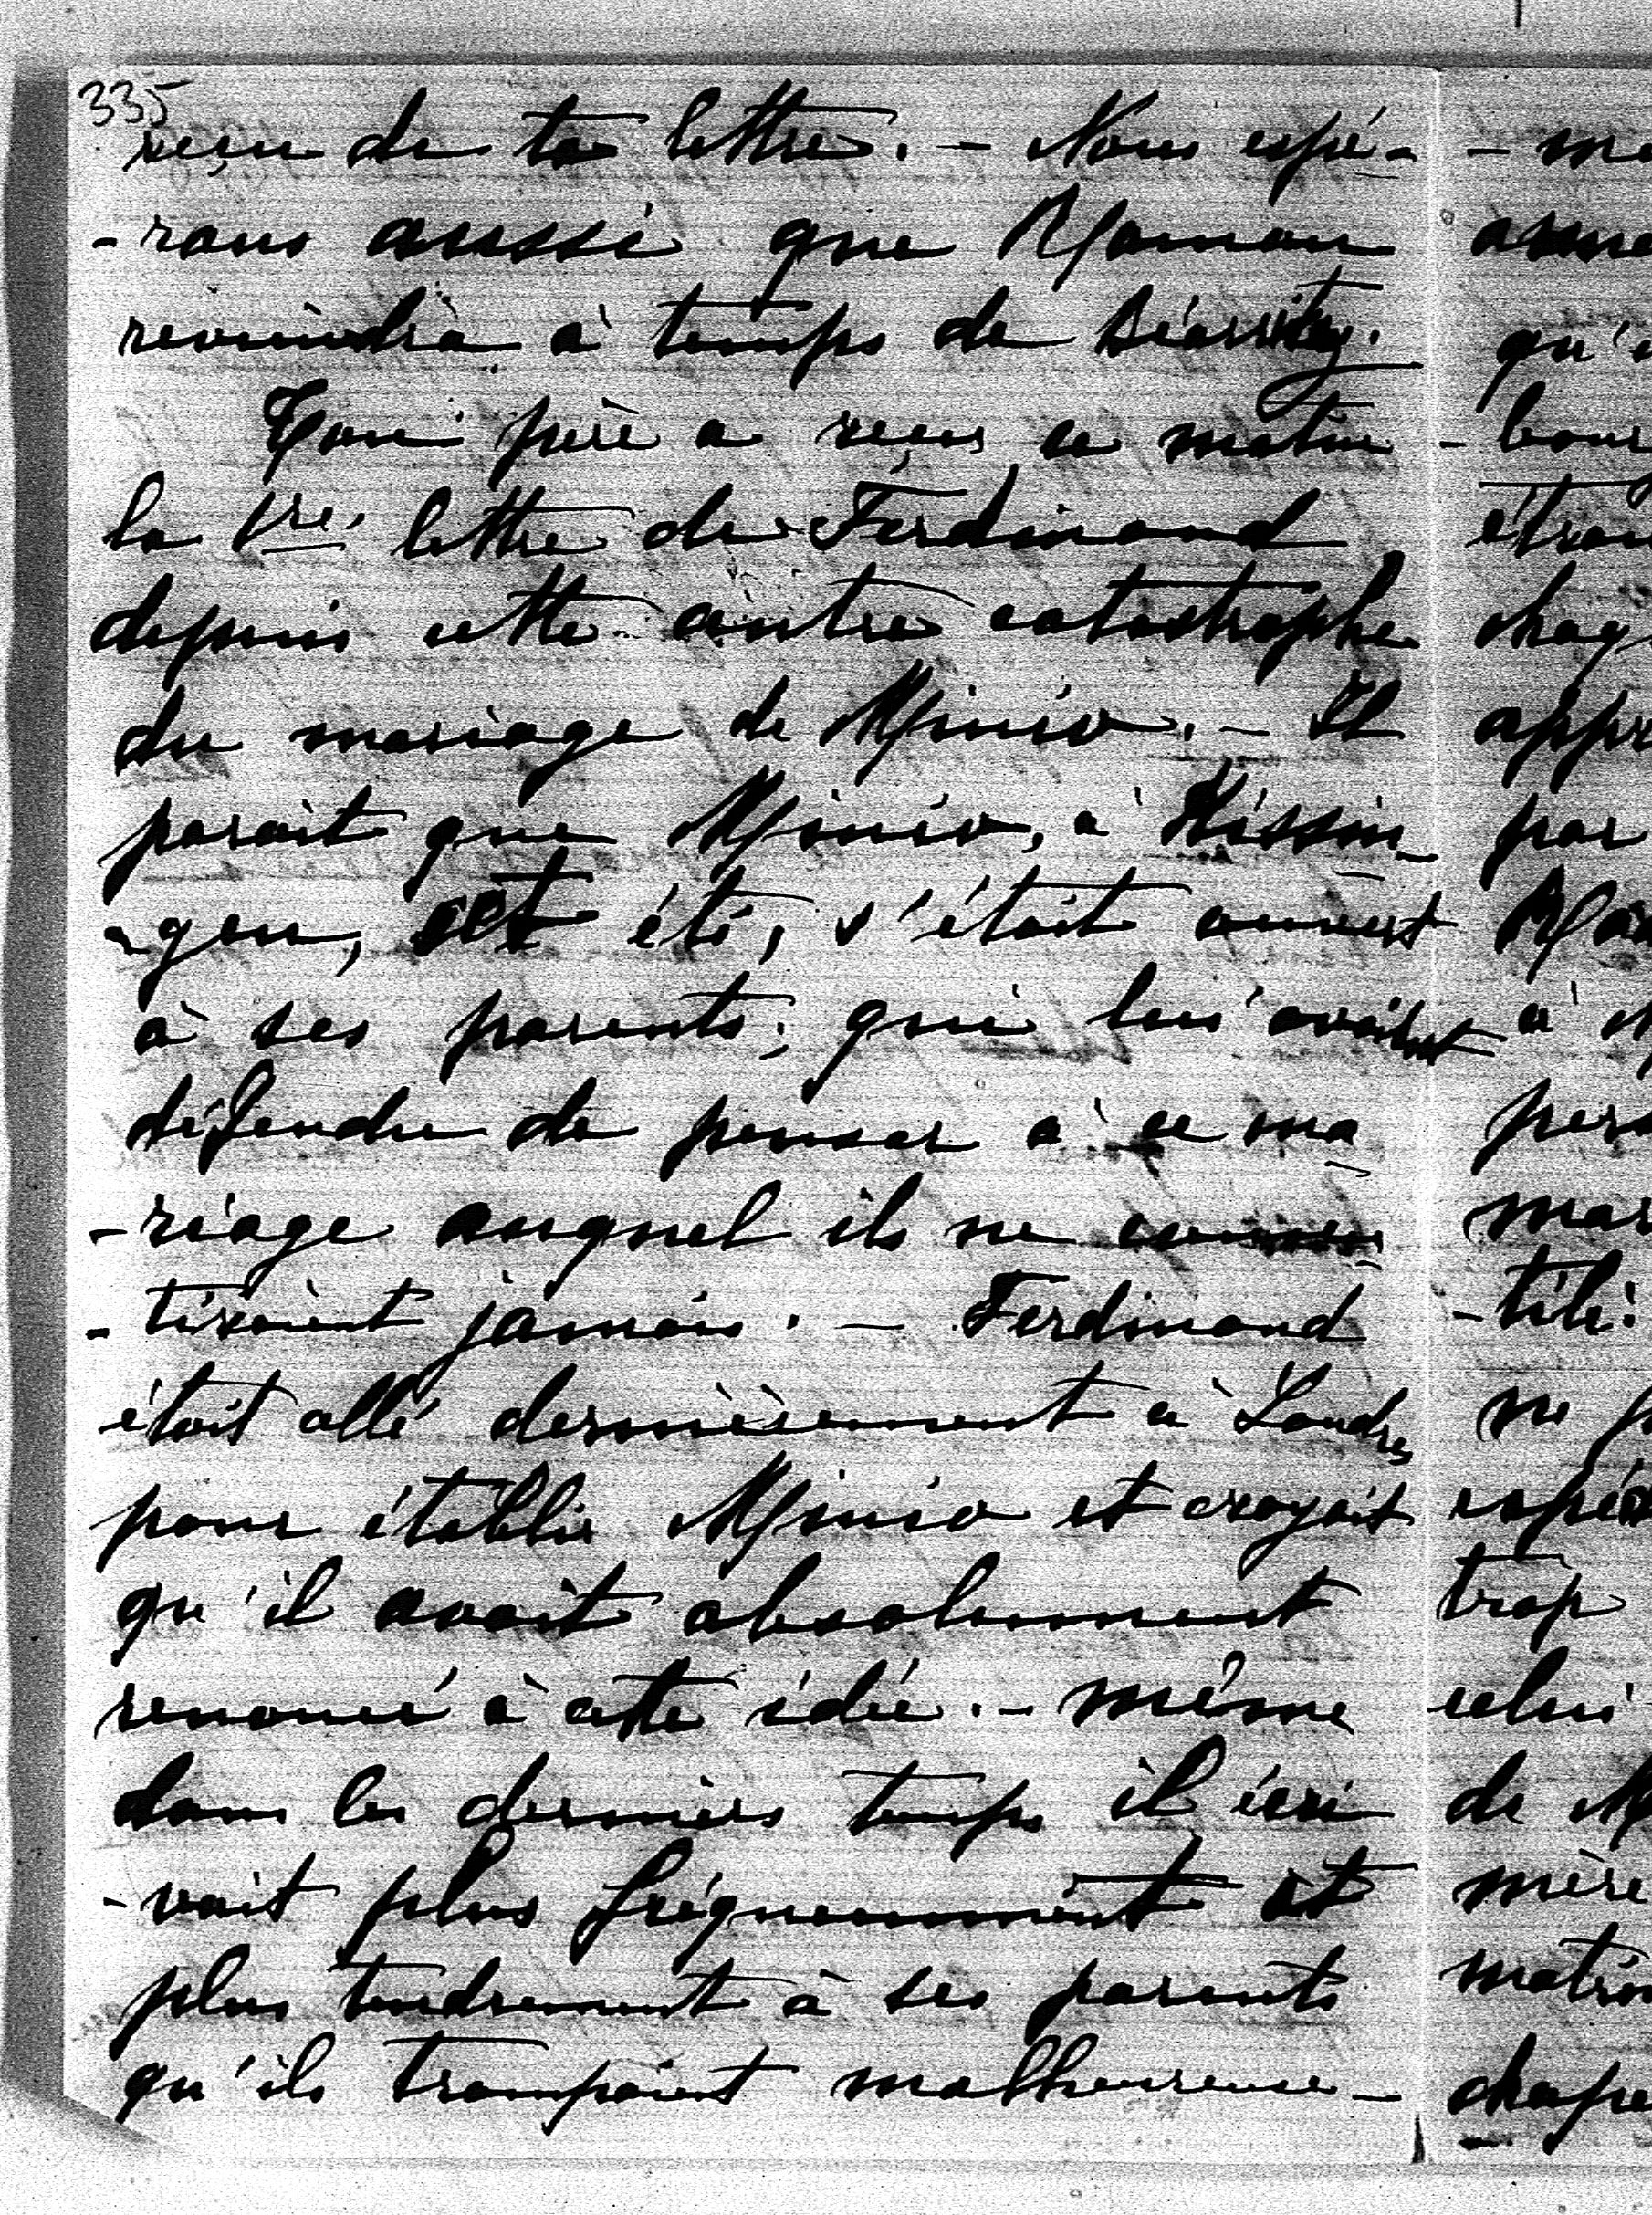 335
reçu de ta lettre. - Nous espé-
-rons aussi que Maman
reviendra à temps de Biarritz.
Ton père a reçu ce matin
la 1re lettre de Ferdinand
depuis cette autre catastrophe
du mariage de Minio. - Il
parait que Minio, à Kissin-
-gen, cet été, s'était ouvert
à ses parents; qui lui avaient
défendu de penser à ce ma
-riage auquel ils ne consen
-tiraient jamais. - Ferdinand
était allé dernièrement à Londres
pour établir Minio et croyait
qu'il avait absolument
renoncé à cette idée. - même
dans les derniers temps il écri
-vait plus fréquemment et
plus tendrement à ses parents
qu'ils trompaient malheureuse-
- me
qu'
étran
chag
appr
par
à
pers
mar
-tili
ne
espér
trop
celui
de M
mère
matin